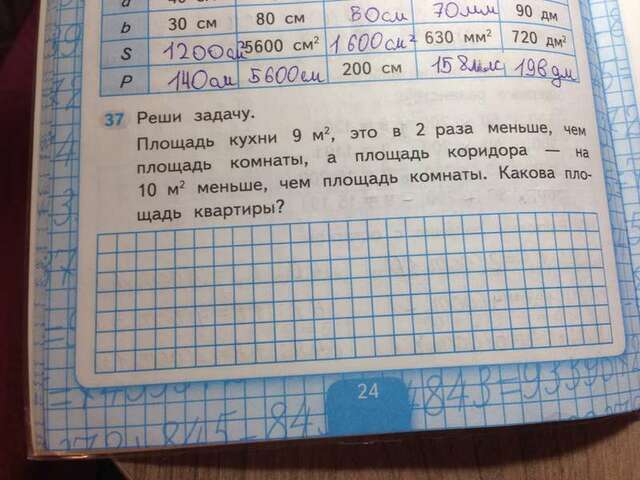 b 30 см 80 см 80см 70мм 90 дм
S 1200см² 5600 см² 1600см² 630 мм² 720 дм²
P 140см 5600см 200 см 158мм 196дм
37 Реши задачу.
Площадь кухни 9 м², это в 2 раза меньше, чем
площадь комнаты, а площадь коридора — на
10 м² меньше, чем площадь комнаты. Какова пло-
щадь квартиры?
24